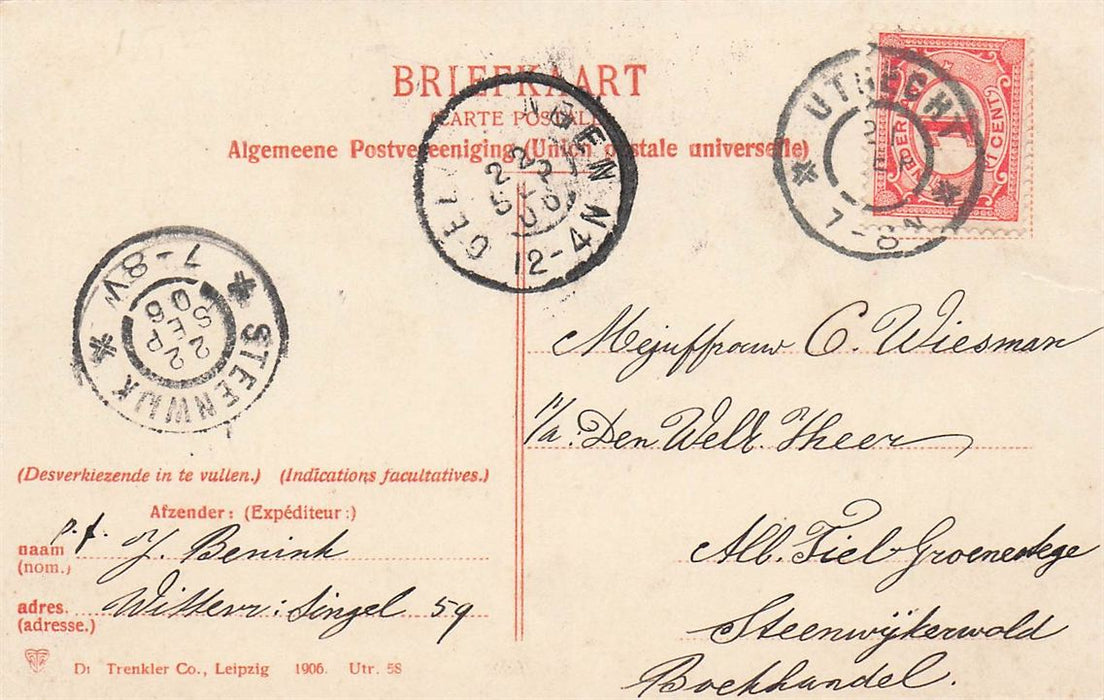 BRIEFKAART
(CARTE POSTALE)
Algemeene Postvereeniging (Union postale universelle)
UTRECHT
7-8N
1 CENT
12-4N
22 SEP 06
STEENWIJK
7-8V
22 SEP 06
Mejuffrouw C. Wiesman
p/a: Den WelE. Heer
Alb. Tiel-Groenestege
Steenwijkerwold
Boekhandel.
(Desverkiezende in te vullen.) (Indications facultatives.)
Afzender: (Expéditeur:)
p.f. J. Benink
naam
(nom.)
Wittevr: Singel 59
adres.
(adresse.)
Dr Trenkler Co., Leipzig 1906. Utr. 58